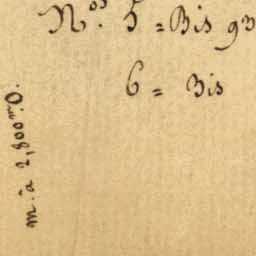 Nos. 5 = Bis 93
6 = Bis
m. à 2,800m. O.